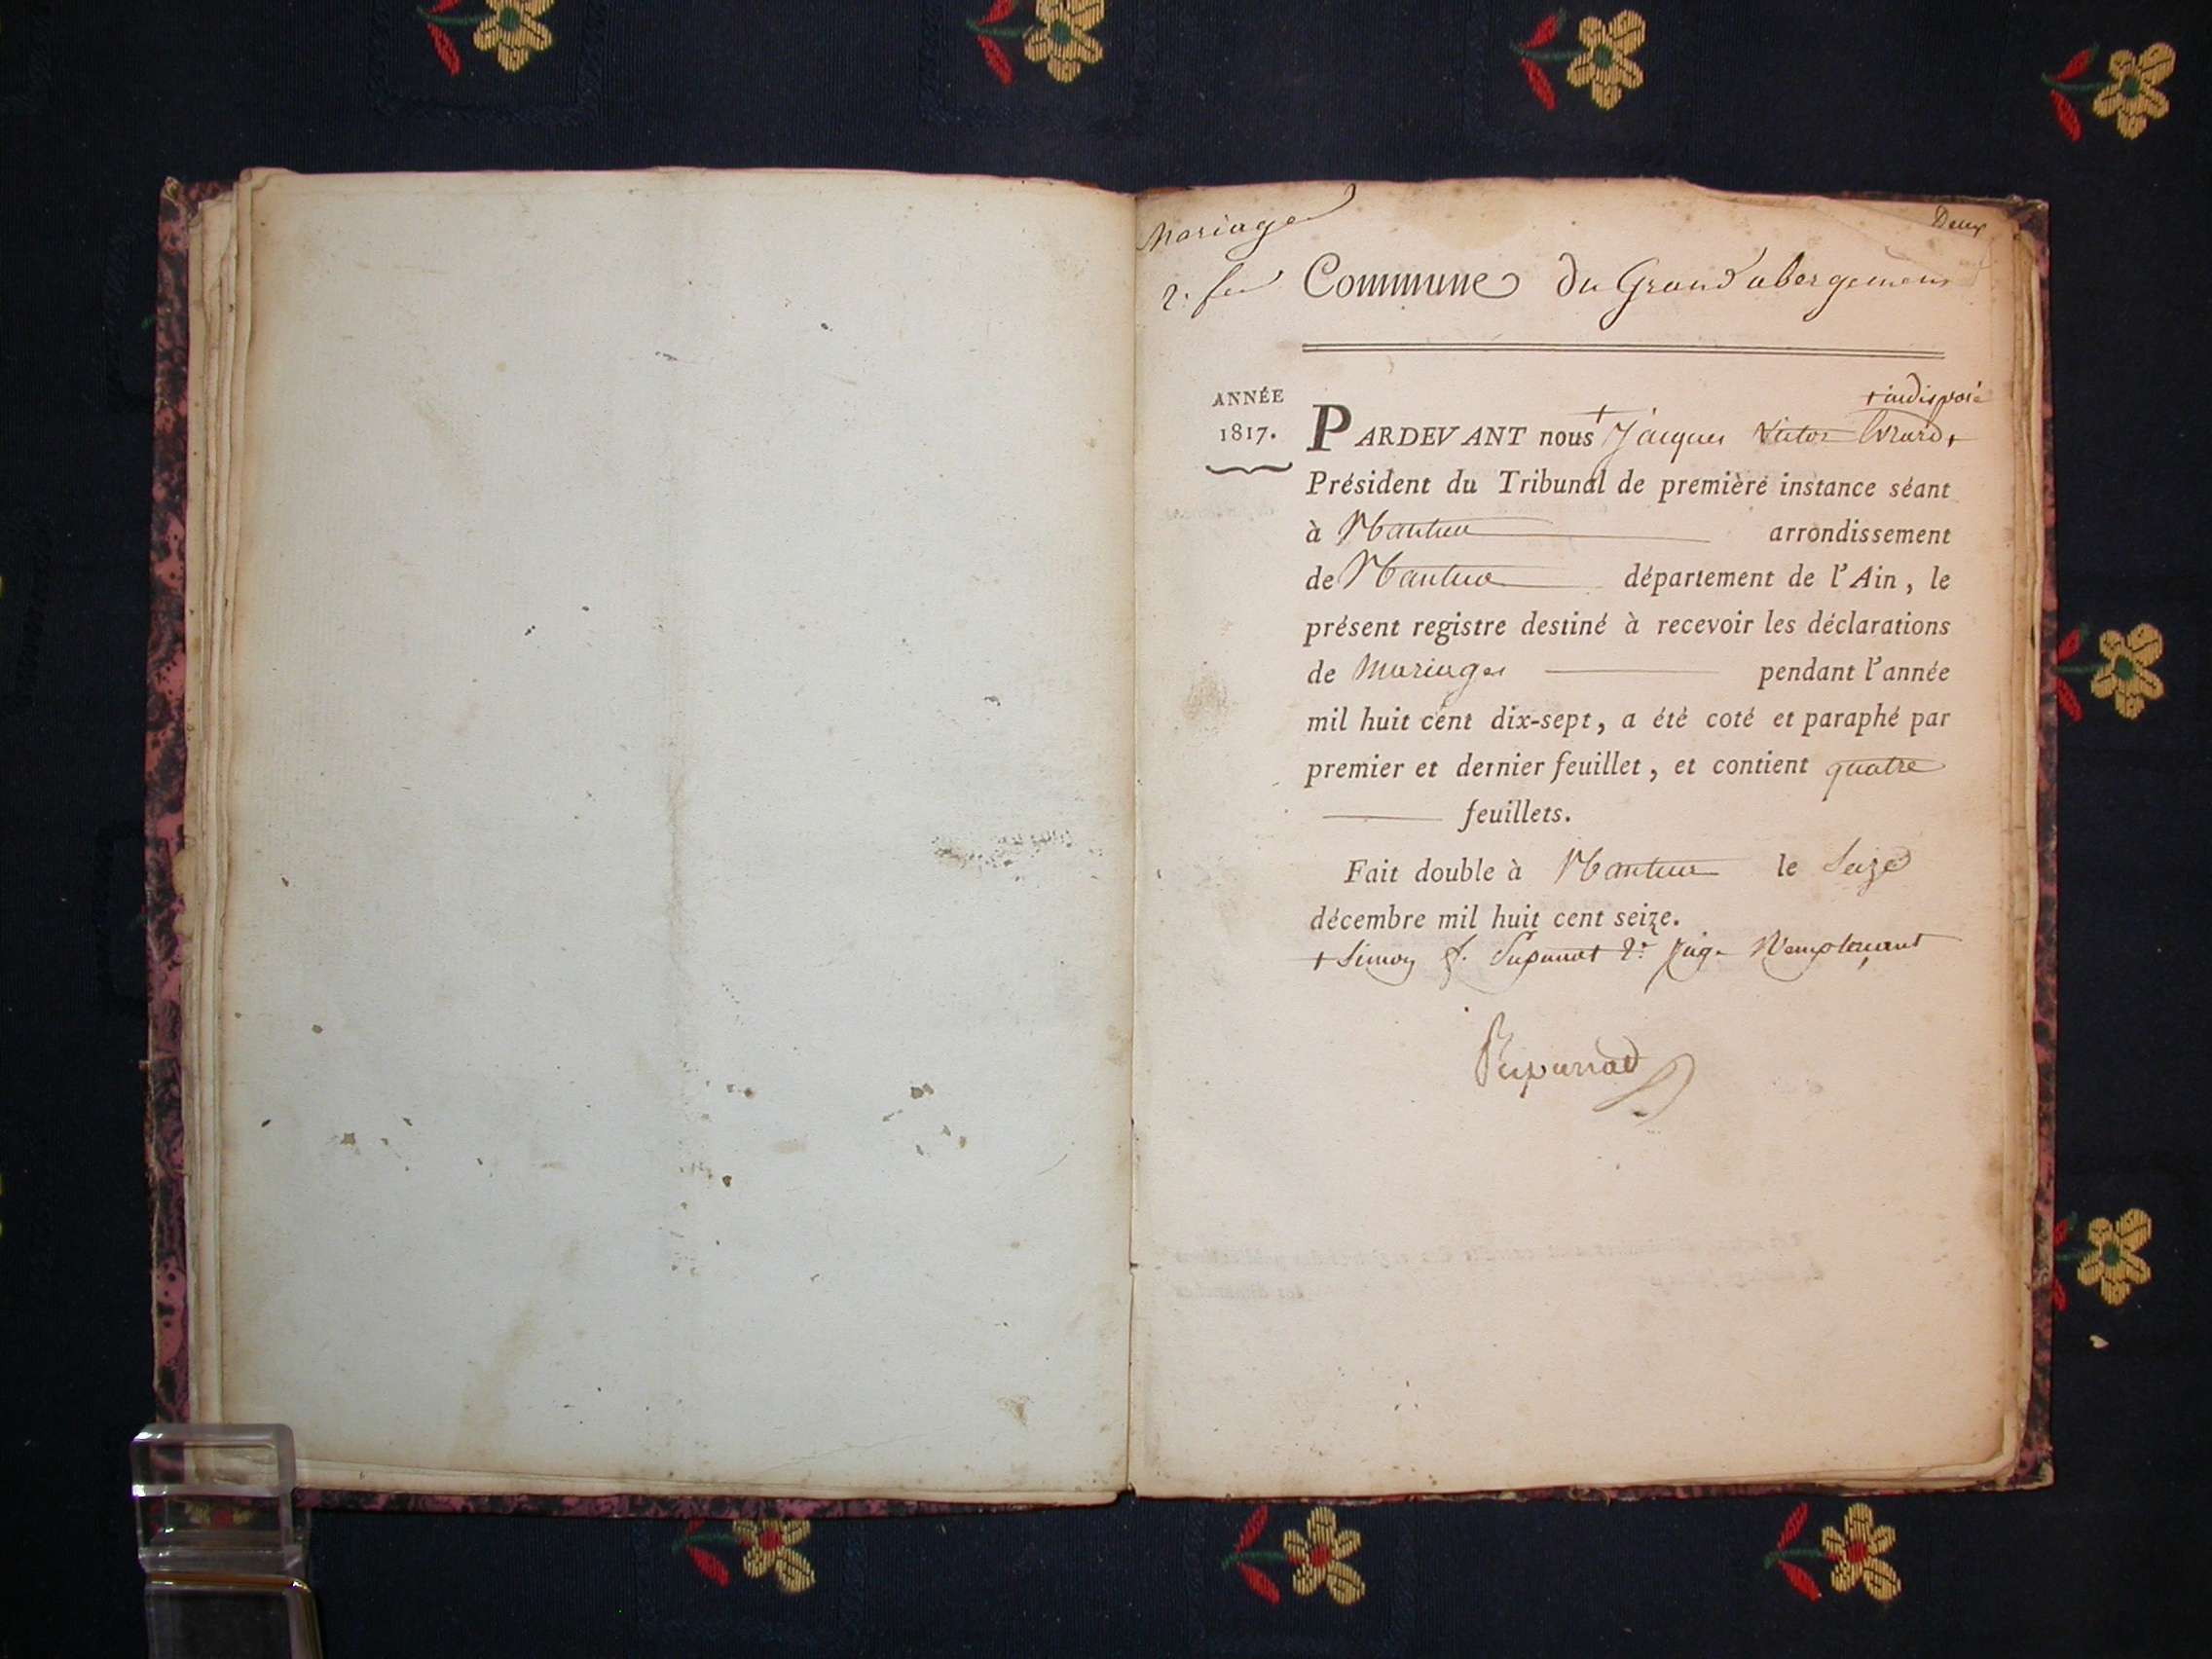 Mariage
Deux
2:
Commune du Grand abergement
ANNÉE
1817.
+ indisposé
PARDEVANT nous + Jacques Victor
Président du Tribunal de première instance séant
à Nantua arrondissement
de Nantua département de l'Ain, le
présent registre destiné à recevoir les déclarations
de Mariages pendant l'année
mil huit cent dix-sept, a été coté et paraphé par
premier et dernier feuillet, et contient quatre
feuillets.
Fait double à Nantua le Seize
décembre mil huit cent seize.
+ Simon 2e Juge Remplaçant